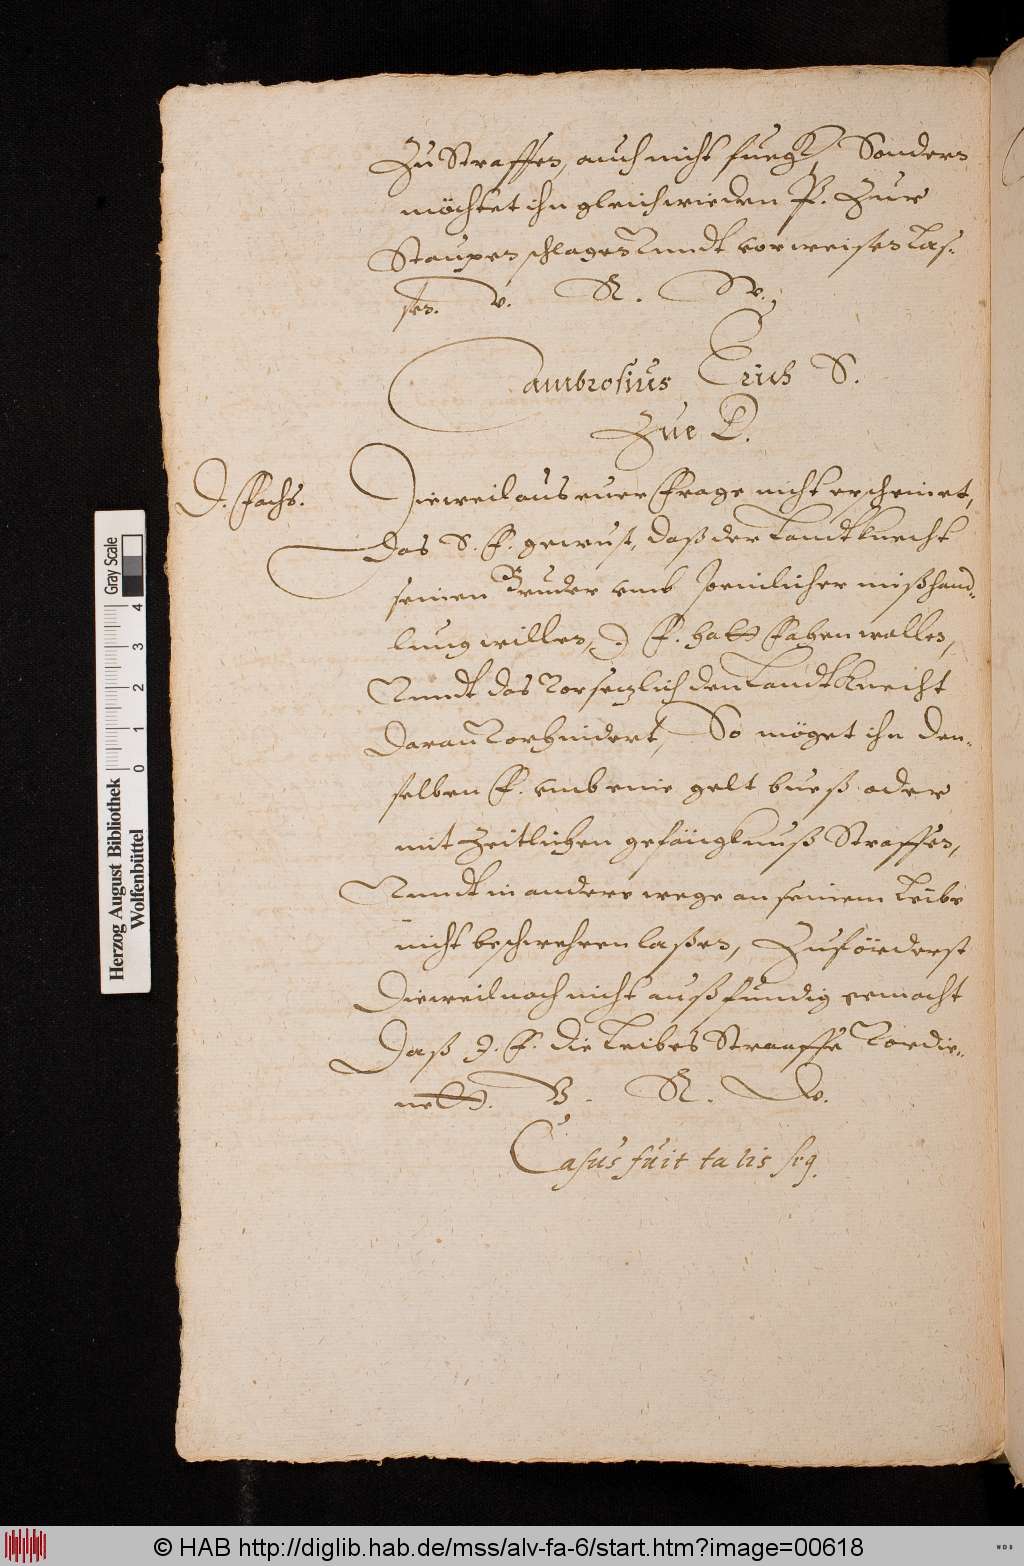 Zu Straffen, auch nicht fuegt, Sondern
möchtet ihn gleich wie den P. Zur
Staupen schlagen Vnndt vorweisen las-
sen. V. R. W.
Cambrosius Erich S.
Zue D.
D. Fachs. Dieweil aus euer Frage nicht erscheinet,
Das S. F. gewust, daß der Landtknecht
seinen Bruder vmb peinlicher mißhand-
lung willen, F. hatt haben wollen,
Vnndt das Vorsezlich den Landt Knecht
daran Vorhindert, So möget ihn den-
selben F. vmb eine gelt bueß oder
mit Zeitlichen gefängknuß Straffen,
Vnndt in andere wege an seinem Leibe
nicht beschwehren laßen, Zuförderst
Dieweil noch nicht außfundig gemacht
Daß F. die Leibes Straaffe Vordie-
nett. V. R. W.
Casus fuit talis seq.
Herzog August Bibliothek
Wolfenbüttel
0 1 2 3 4
Gray Scale
© HAB http://diglib.hab.de/mss/alv-fa-6/start.htm?image=00618